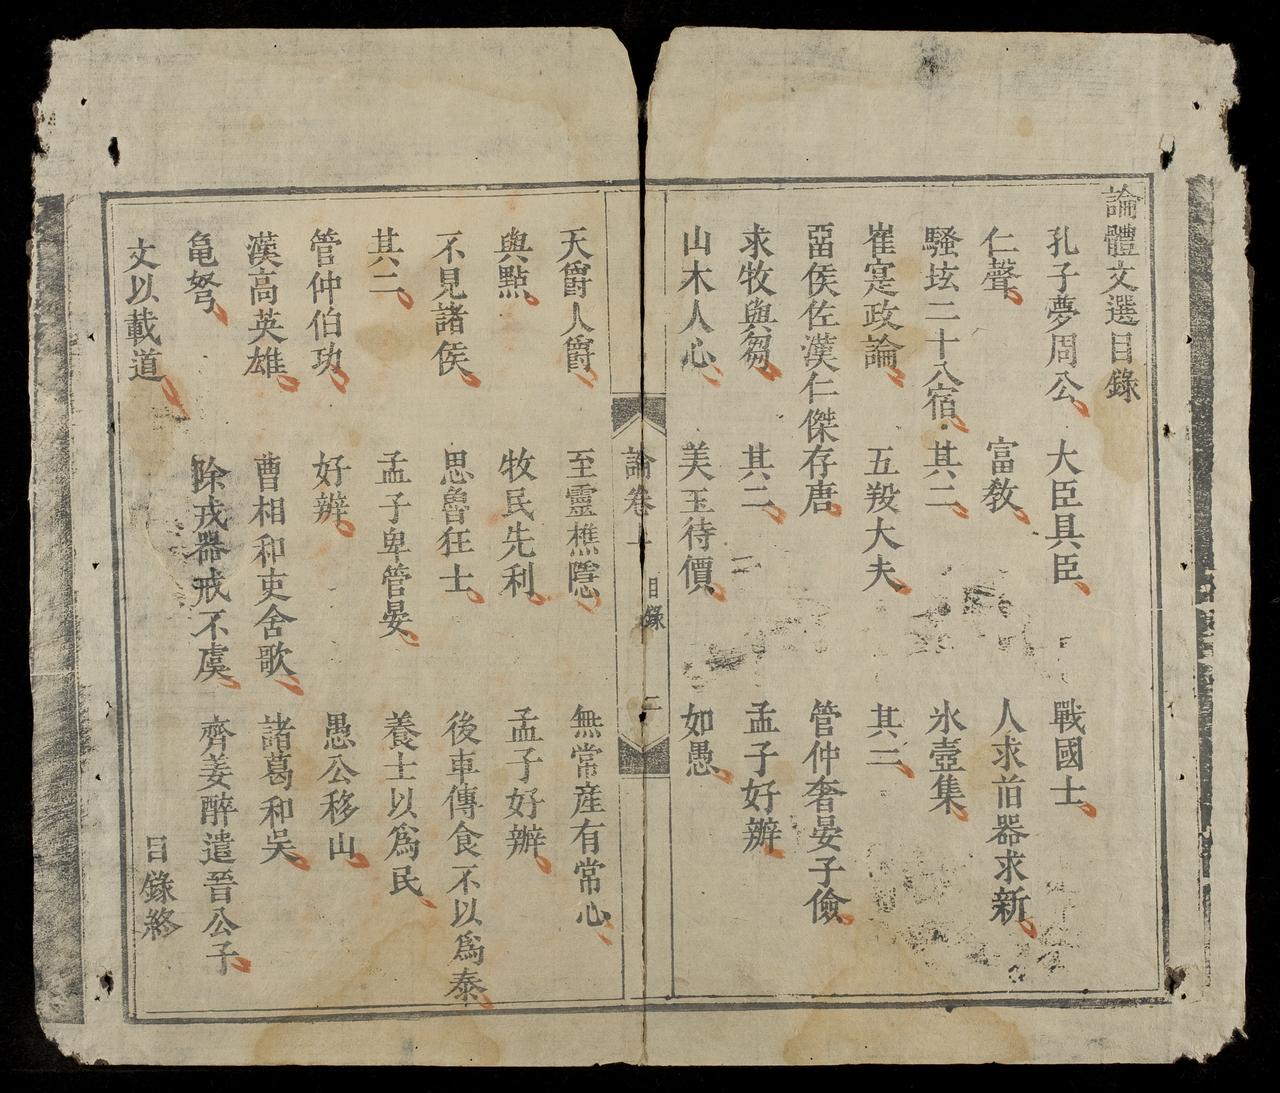 論體文選目錄
孔子夢周公 大臣具臣 戰國士
仁聲 富教 人求旧器求新
騷壇二十八宿 其二 氷壺集
崔寔政論 五羖大夫 其二
畱侯佐漢仁傑存唐 管仲奢晏子儉
求牧與芻 其二 孟子好辨
山木人心 美玉待價 如愚
論卷 目錄 二
天爵人爵 至靈樵隱 無常産有常心
與點 牧民先利 孟子好辨
不見諸侯 思魯狂士 後車傳食不以爲泰
其二 孟子卑管晏 養士以爲民
管仲伯功 好辨 愚公移山
漢高英雄 曹相和吏舍歌 諸葛和吳
亀弩 除戎器戒不虞 齊姜醉遣晉公子
文以載道 目錄終